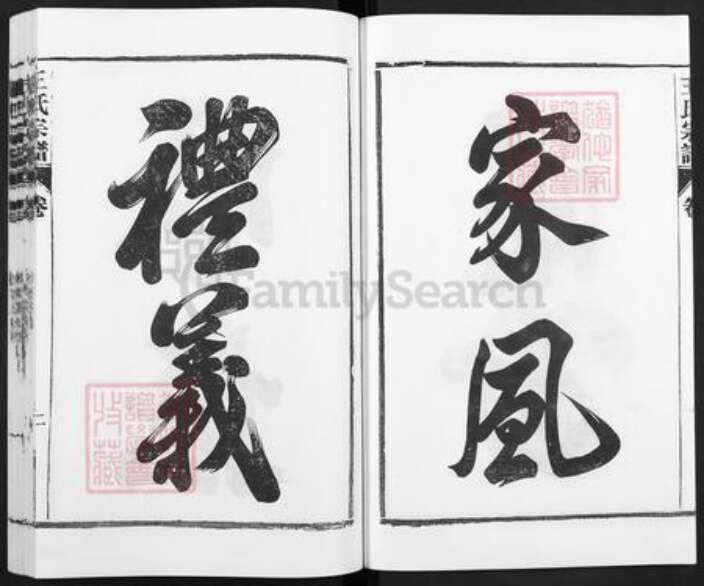 家風
王氏宗譜
卷
禮義
王氏宗譜
卷
二
FamilySearch